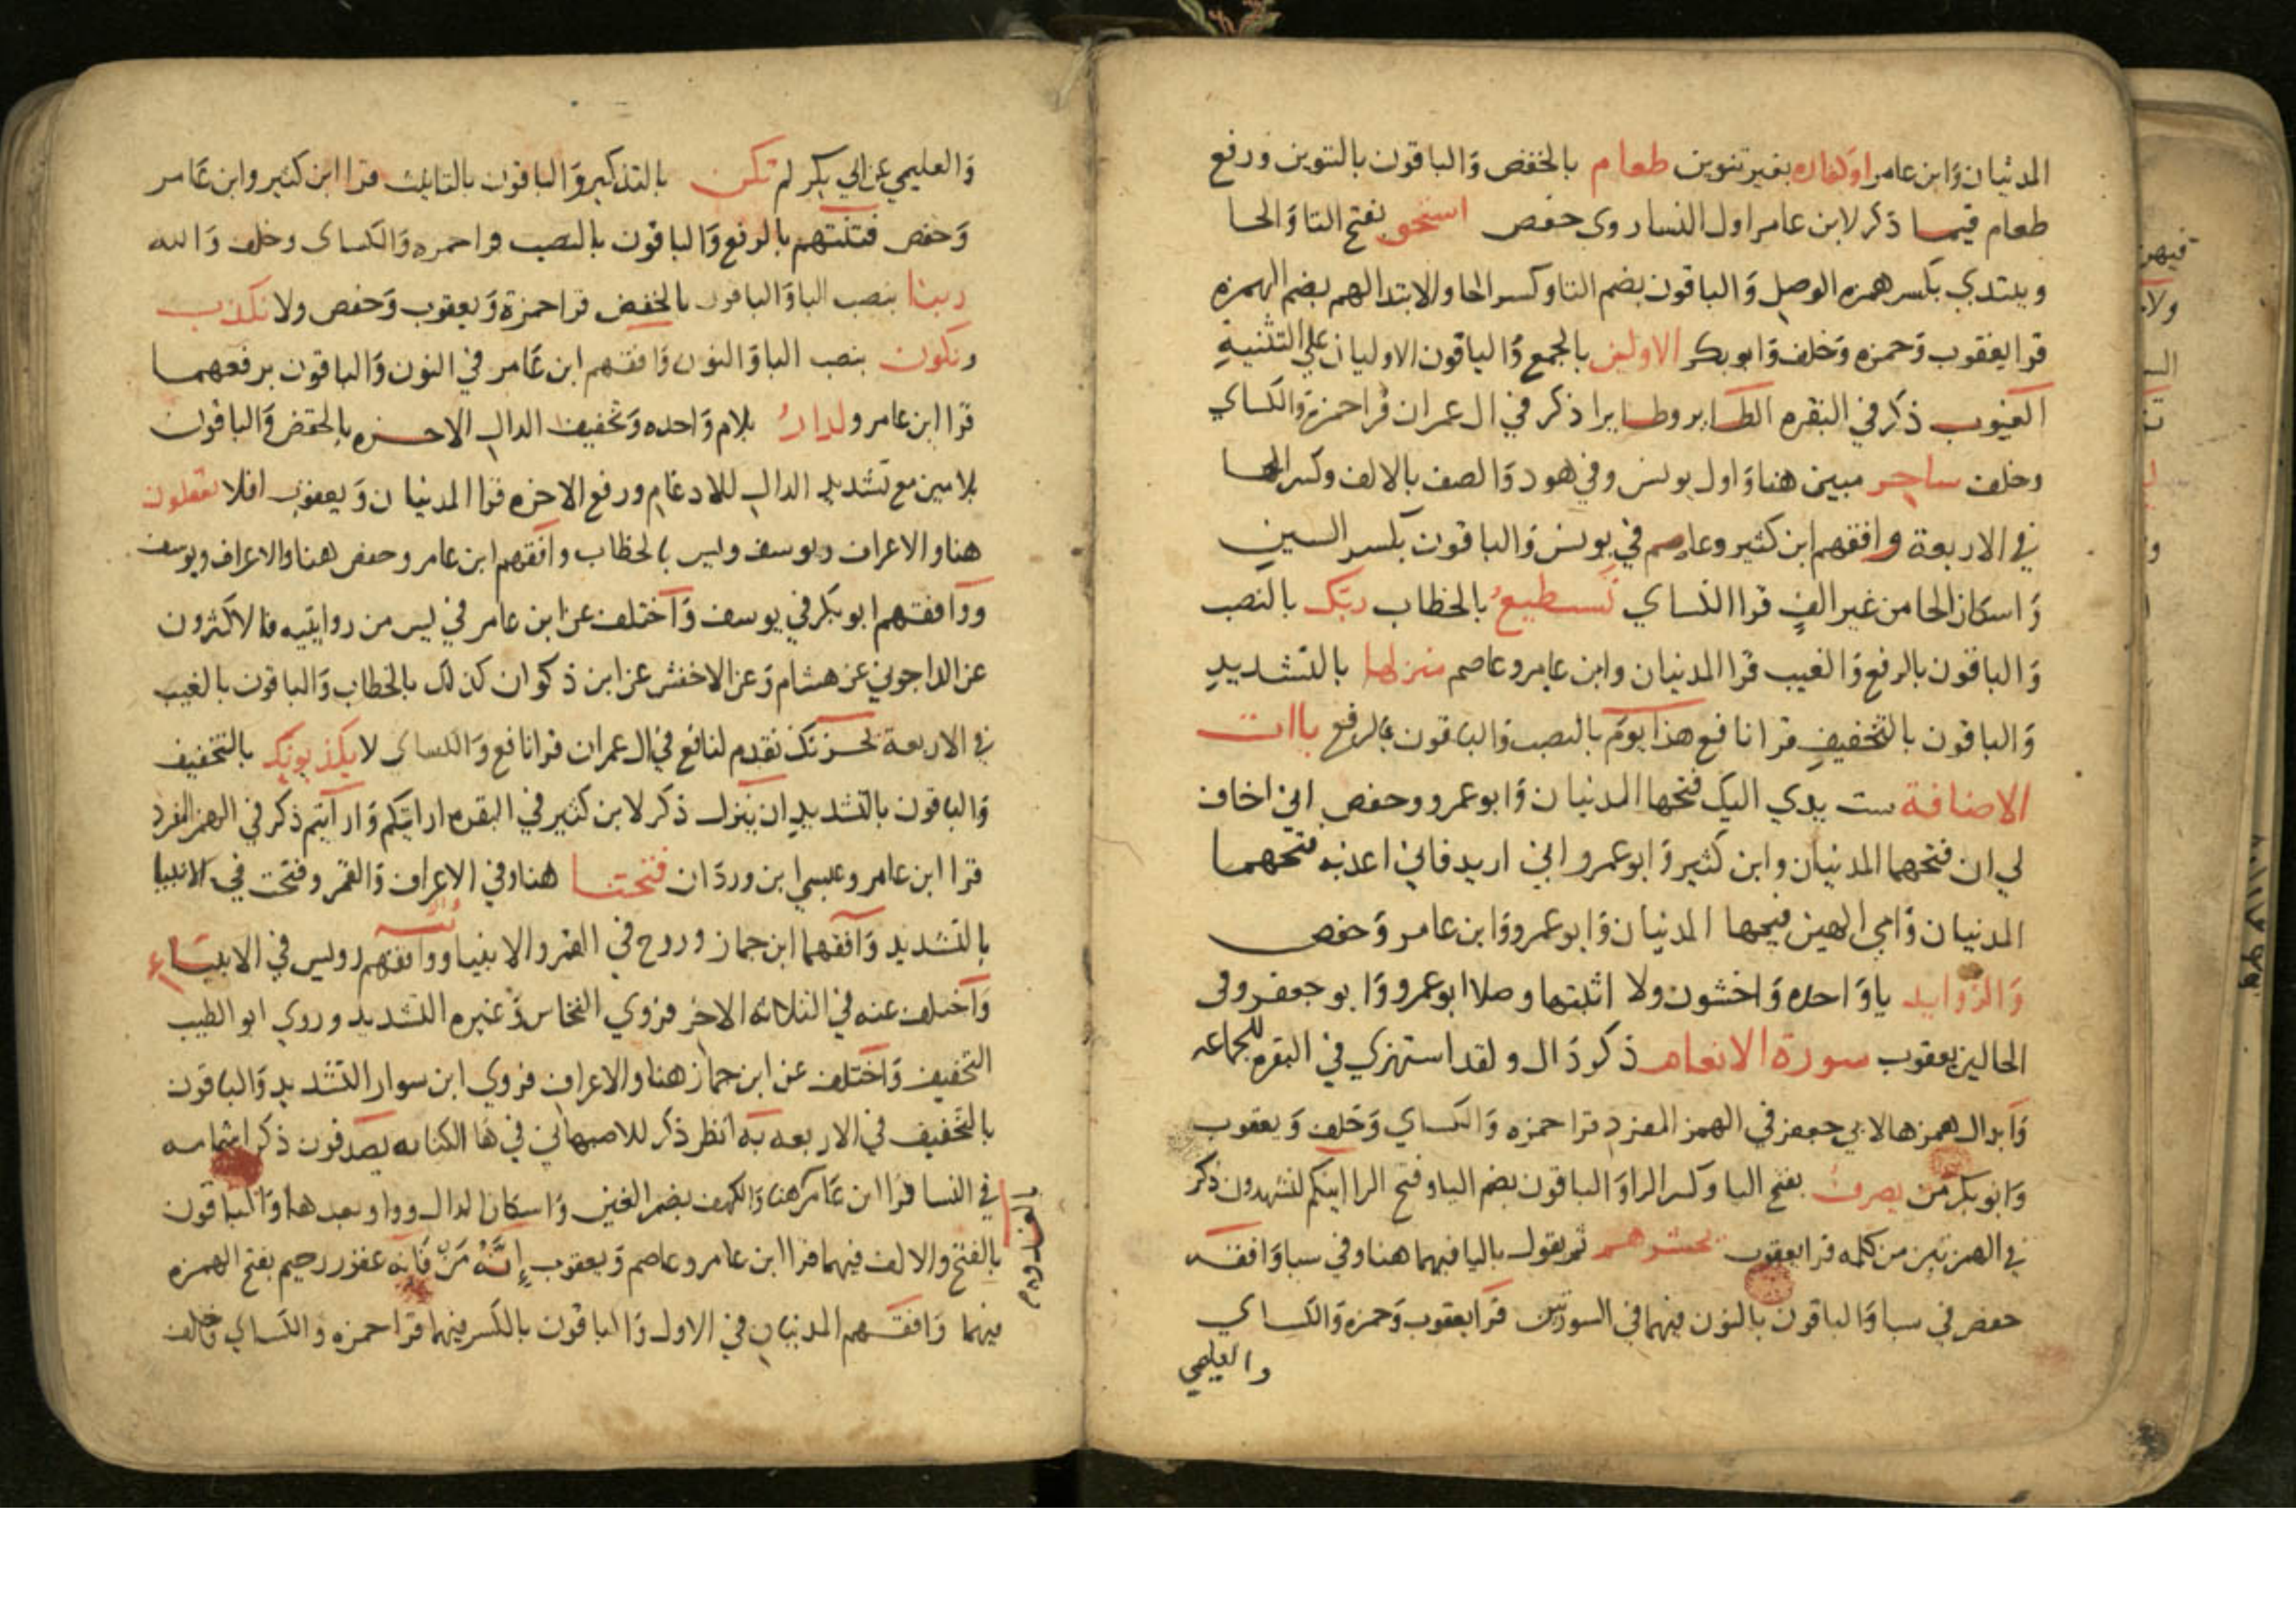 المدنيان وَابن عامر اوكفاره بغير تنوين طعام بالخفض وَالباقون بالتنوين ورفع
طعام قيما ذكر لابن عامر اول النسا روى حفص استحق بفتح التا وَالحا
ويبتدي بكسر همزه الوصل وَالباقون بضم التا وكسر الحا والابتدا لهم بضم الهمزه
قرا يعقوب وَحمزه وَخلف وَابو بكر الاولين بالجمع وَالباقون الاوليان على التثنيةِ
الغيوب ذكر في البقره الطاير وطايرا ذكر في ال عمران قرا حمزة وَالكساي
وخلف ساحر مبين هنا وَاول يونس وفي هود وَالصف بالالف وكسر الحا
في الاربعة وافقهم ابن كثير وعاصم في يونس وَالباقون بكسر السين
وَاسكان الحا من غير الفٍ قرا الكساي تستطيعُ بالخطاب ربّك بالنصب
وَالباقون بالرفع وَالغيب قرا المدنيان وابن عامر وعاصم منزلها بالتشديد
وَالباقون بالتخفيف قرا نافع هذا يومَ بالنصب وَالباقون بالرفع ياات
الاضافة ست يدي اليك فتحها المدنيان وَابو عمرو وحفص اني اخاف
لي ان فتحهما المدنيان وابن كثير وَابو عمرو اني اريد فاني اعذبه فتحهما
المدنيان وَامي الهين فتحها المدنيان وَابو عمرو وَابن عامر وَحفص
وَالزوايد ياوَاحده وَاخشون ولا اثبتها وصلا ابو عمرو وَابو جعفر وفى
الحالين يعقوب سورة الانعام ذكر دَال ولقد استهزي في البقره للجماعه
وَابدال همزها لابي جعفر في الهمز المفرد قرا حمزه وَالكساي وَخلف وَيعقوب
وَابو بكر مَن يصرف بفتح اليا وكسر الراوَ الباقون بضم اليا وفتح الرا اينكم لتشهدون ذكر
في الهمزتين من كلمه قرا يعقوب يحشرهم ثم يقول باليا فيهما هنا وفي سبا وَافقه
حفص في سبا وَالباقون بالنون فيهما في السورتين قرَا يعقوب وَحمزه وَالكساي
والعليمي
وَالعليمي عن ابي بكر لم تكن بالتذكير وَالباقون بالتانيث قرا ابن كثير وابن عَامر
وَحفص فتنتهم بالرفع وَالباقون بالنصب قرا حمزه وَالكساى وخلف وَالله
ربنا بنصب البا وَالباقون بالخفض قرا حمزة وَيعقوب وَحفص ولا نكذب
ونكون بنصب الباوَ النون وَافقهم ابن عَامر في النون وَالباقون برفعهما
قرا ابن عامر ولدارُ بلام وَاحده وَتخفيف الدال الاخره بالخفض وَالباقون
بلامين مع تشديد الدال للادغام ورفع الاخره قرا المدنيان وَيعقوب افلا تعقلون
هنا والاعراف ويوسف ويس بالخطاب وافقهم ابن عامر وحفص هنا والاعراف ويوسف
ووَافقهم ابو بكر في يوسف وَاختلف عن ابن عامر في يس من روايتيه فالاكثرون
عن الداجوني عن هشام وَعن الاخفش عن ابن ذكوان كذلك بالخطاب وَالباقون بالغيب
في الاربعة يحزنك تقدم لنافع في ال عمران قرا نافع وَالكساى لا يكذبونك بالتخفيف
وَالباقون بالتشديد ان ينزل ذكر لابن كثير في البقره ارايتكم وَارايتم ذكر في الهمز المفرد
قرا ابن عامر وعيسى ابن وردَان فتحنا هنا وفي الاعراف وَالقمر وفتحت في الانبيا
بالتشديد وَافقهما ابن جماز وروح في القمر والانبيا ووافقهم رويس في الانبيَاء
وَاختلف عنه في الثلاثه الاخر فروي النخاس وَغيره التشديد وروي ابو الطيب
التخفيف وَاختلف عن ابن جماز هنا والاعراف فروي ابن سوار التشديد وَالباقون
بالتخفيف في الاربعه به انظر ذكر للاصبهاني في هَا الكنايه يصدفون ذكر اشمامه
في النسا قرا ابن عَامر هنا وَالكهف بضم الغين وَاسكان الدال وواو بعدها وَالباقون
بالفتح والالف فيهما قرا ابن عامر وعاصم وَيعقوب إنَّهُ مَنْ فَانه غفور رحيم بفتح الهمزه
فيهما وَافقهم المدنيان في الاول وَالباقون بالكسر فيهما قرا حمزه وَالكساي وخلف